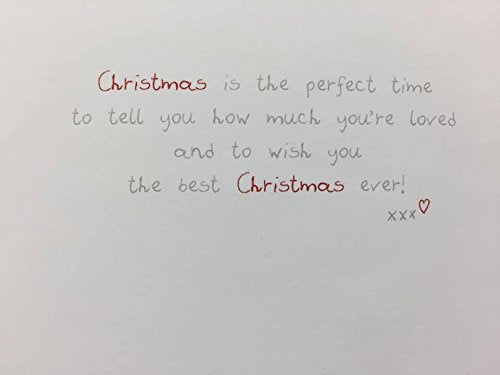 Christmas is the perfect time
to tell you how much you're loved
and to wish you
the best Christmas ever!
xxx♡